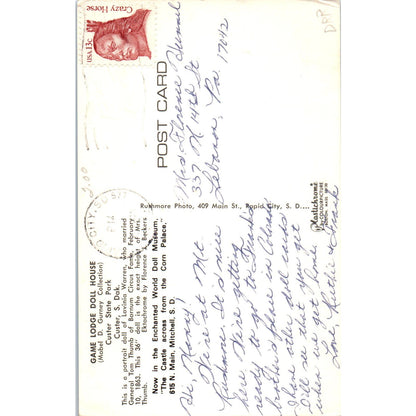 GAME LODGE DOLL HOUSE
(Mabel D. Gurney Collection)
Custer State Park
Custer, S. Dak.
This is a portrait doll of Lavinia Warren, who married
General Tom Thumb of Barnum Circus Fame, February
10, 1863. This 36" doll is the exact height of Mrs.
Thumb. Ektachrome by Florence J. Beckers
Now in the Enchanted World Doll Museum,
"The Castle across from the Corn Palace,"
615 N. Main, Mitchell, S. D.
Hi, Nancy
Here at Mt.
Rushmore It is nice
here We're getting
ready to go to Freda's
brother's place in Colorado
I have another doll card
I'll see if I can get
when I get home
Love Kathie &
Rushmore Photo, 409 Main St., Rapid City, S. D.
Plastichrome
POST CARD
Crazy Horse
USA 13c
CITY, SD
PM
Mrs Florence
337 N 14th St
Lebanon, Pa 17042
2.00
DRP